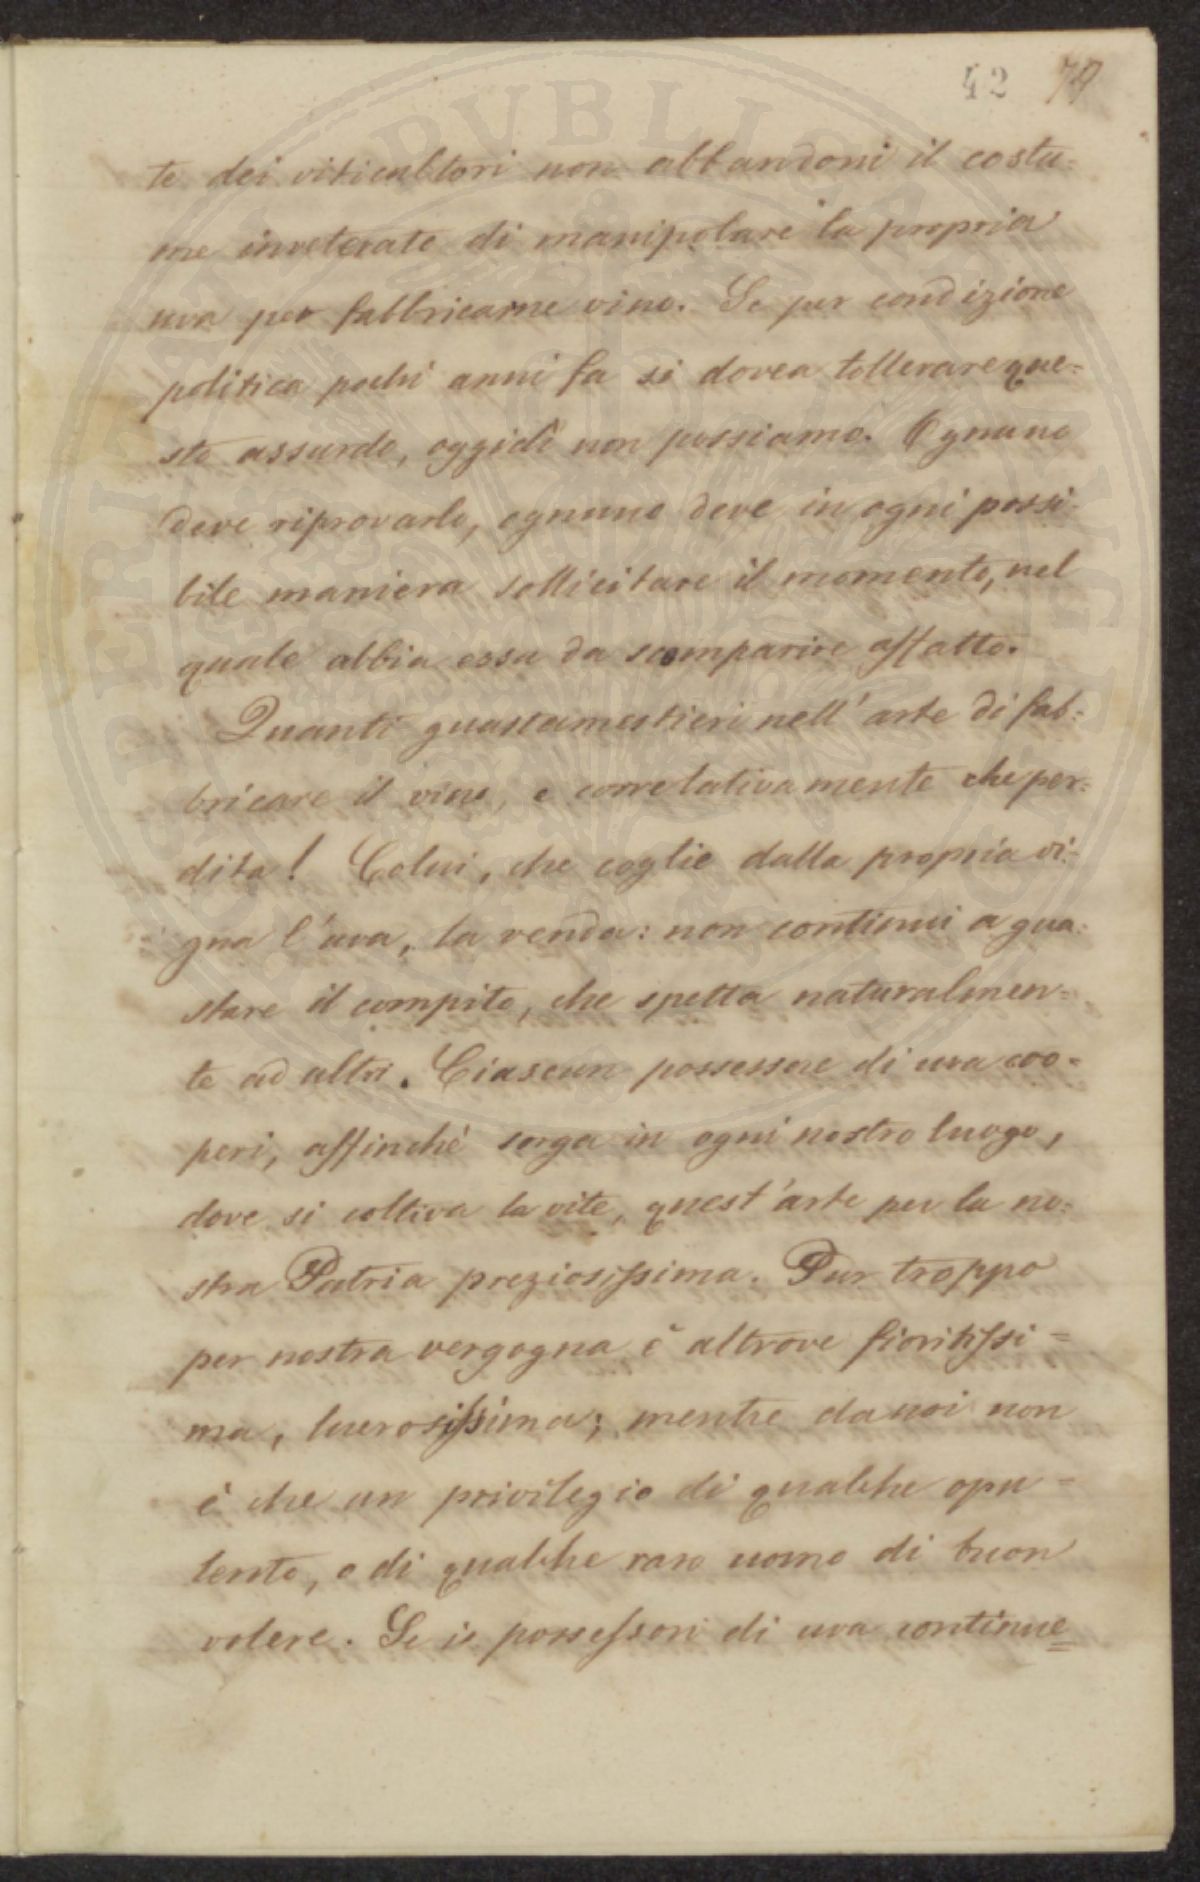 42 79
te dei viticultori non abbandoni il costu-
me inveterato di manipolare la propria
uva per fabbricarne vino. Se per condizione
politica pochi anni fa si dovea tollerare que=
sto assurdo, oggidì non possiamo. Ognuno
deve riprovarlo, ognuno deve in ogni possi-
bile maniera sollicitare il momento, nel
quale abbia esso da scomparire affatto.
Quanti guastamestieri nell'arte di fab=
bricare il vino, e correlativamente che per=
dita! Colui, che coglie dalla propria vi-
gna l'uva, la venda: non continui a gua-
stare il compito, che spetta naturalmen-
te ad altri. Ciascun possessore di uva coo=
peri, affinchè sorga in ogni nostro luogo,
dove si coltiva la vite, quest'arte per la no=
stra Patria preziosissima. Pur troppo
per nostra vergogna è altrove fioritissi=
ma, lucrosissima; mentre da noi non
è che un privilegio di qualche opu=
lento, o di qualche raro uomo di buon
volere. Se i possessori di uva continue=